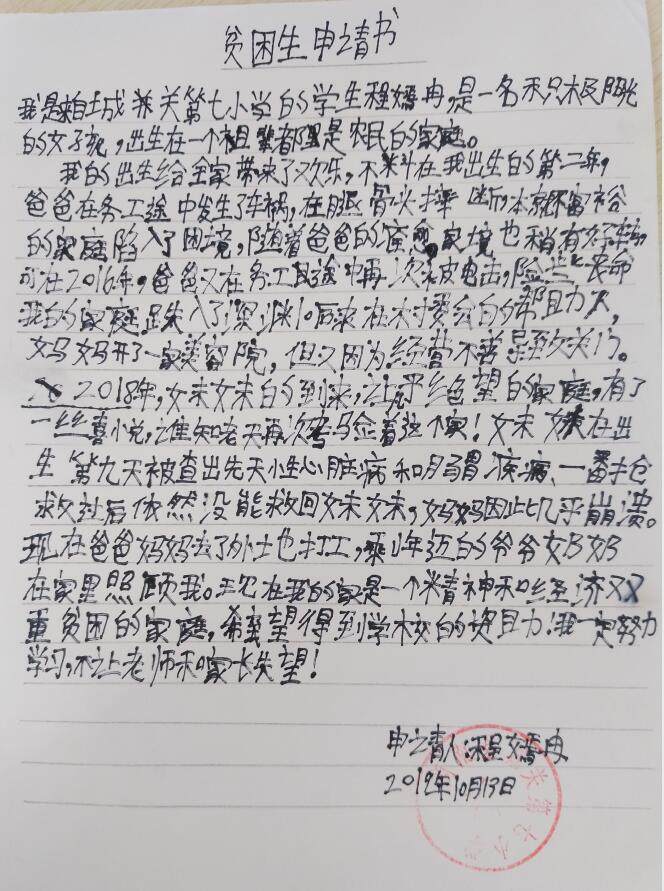 贫困生申请书
我是来自土城 关第七小学的学生程嫣冉,是一名积极阳光
的女孩,出生在一个祖辈都是农民的家庭。
我的出生给全家带来了欢乐,不料在我出生的第二年,
爸爸在务工途中发生了车祸,在腿骨 断,本就不富裕
的家庭陷入了困境,随着爸爸的痊愈,家境也稍有好转,
可在2016年,爸爸又在务工途中再次被电击,险些丧命
我的家庭跌入了 后来在村委会的帮助下,
妈妈开了一家美容院,但又因为经营不善导致关门。
2018年,妹妹的到来,让几乎绝望的家庭,有了
一丝喜悦,谁知老天再次考验着这个家!妹妹在出
生第九天被查出先天性心脏病和肠胃疾病、一番抢
救过后依然没能救回妹妹,妈妈因此几乎崩溃。
现在爸爸妈妈去了外地打工,年迈的爷爷奶奶
在家里照顾我。现在我的家是一个精神和经济双
重贫困的家庭,希望得到学校的资助,我一定努力
学习,不让老师和家长失望!
申请人:程嫣冉
2019年10月13日
关第七小